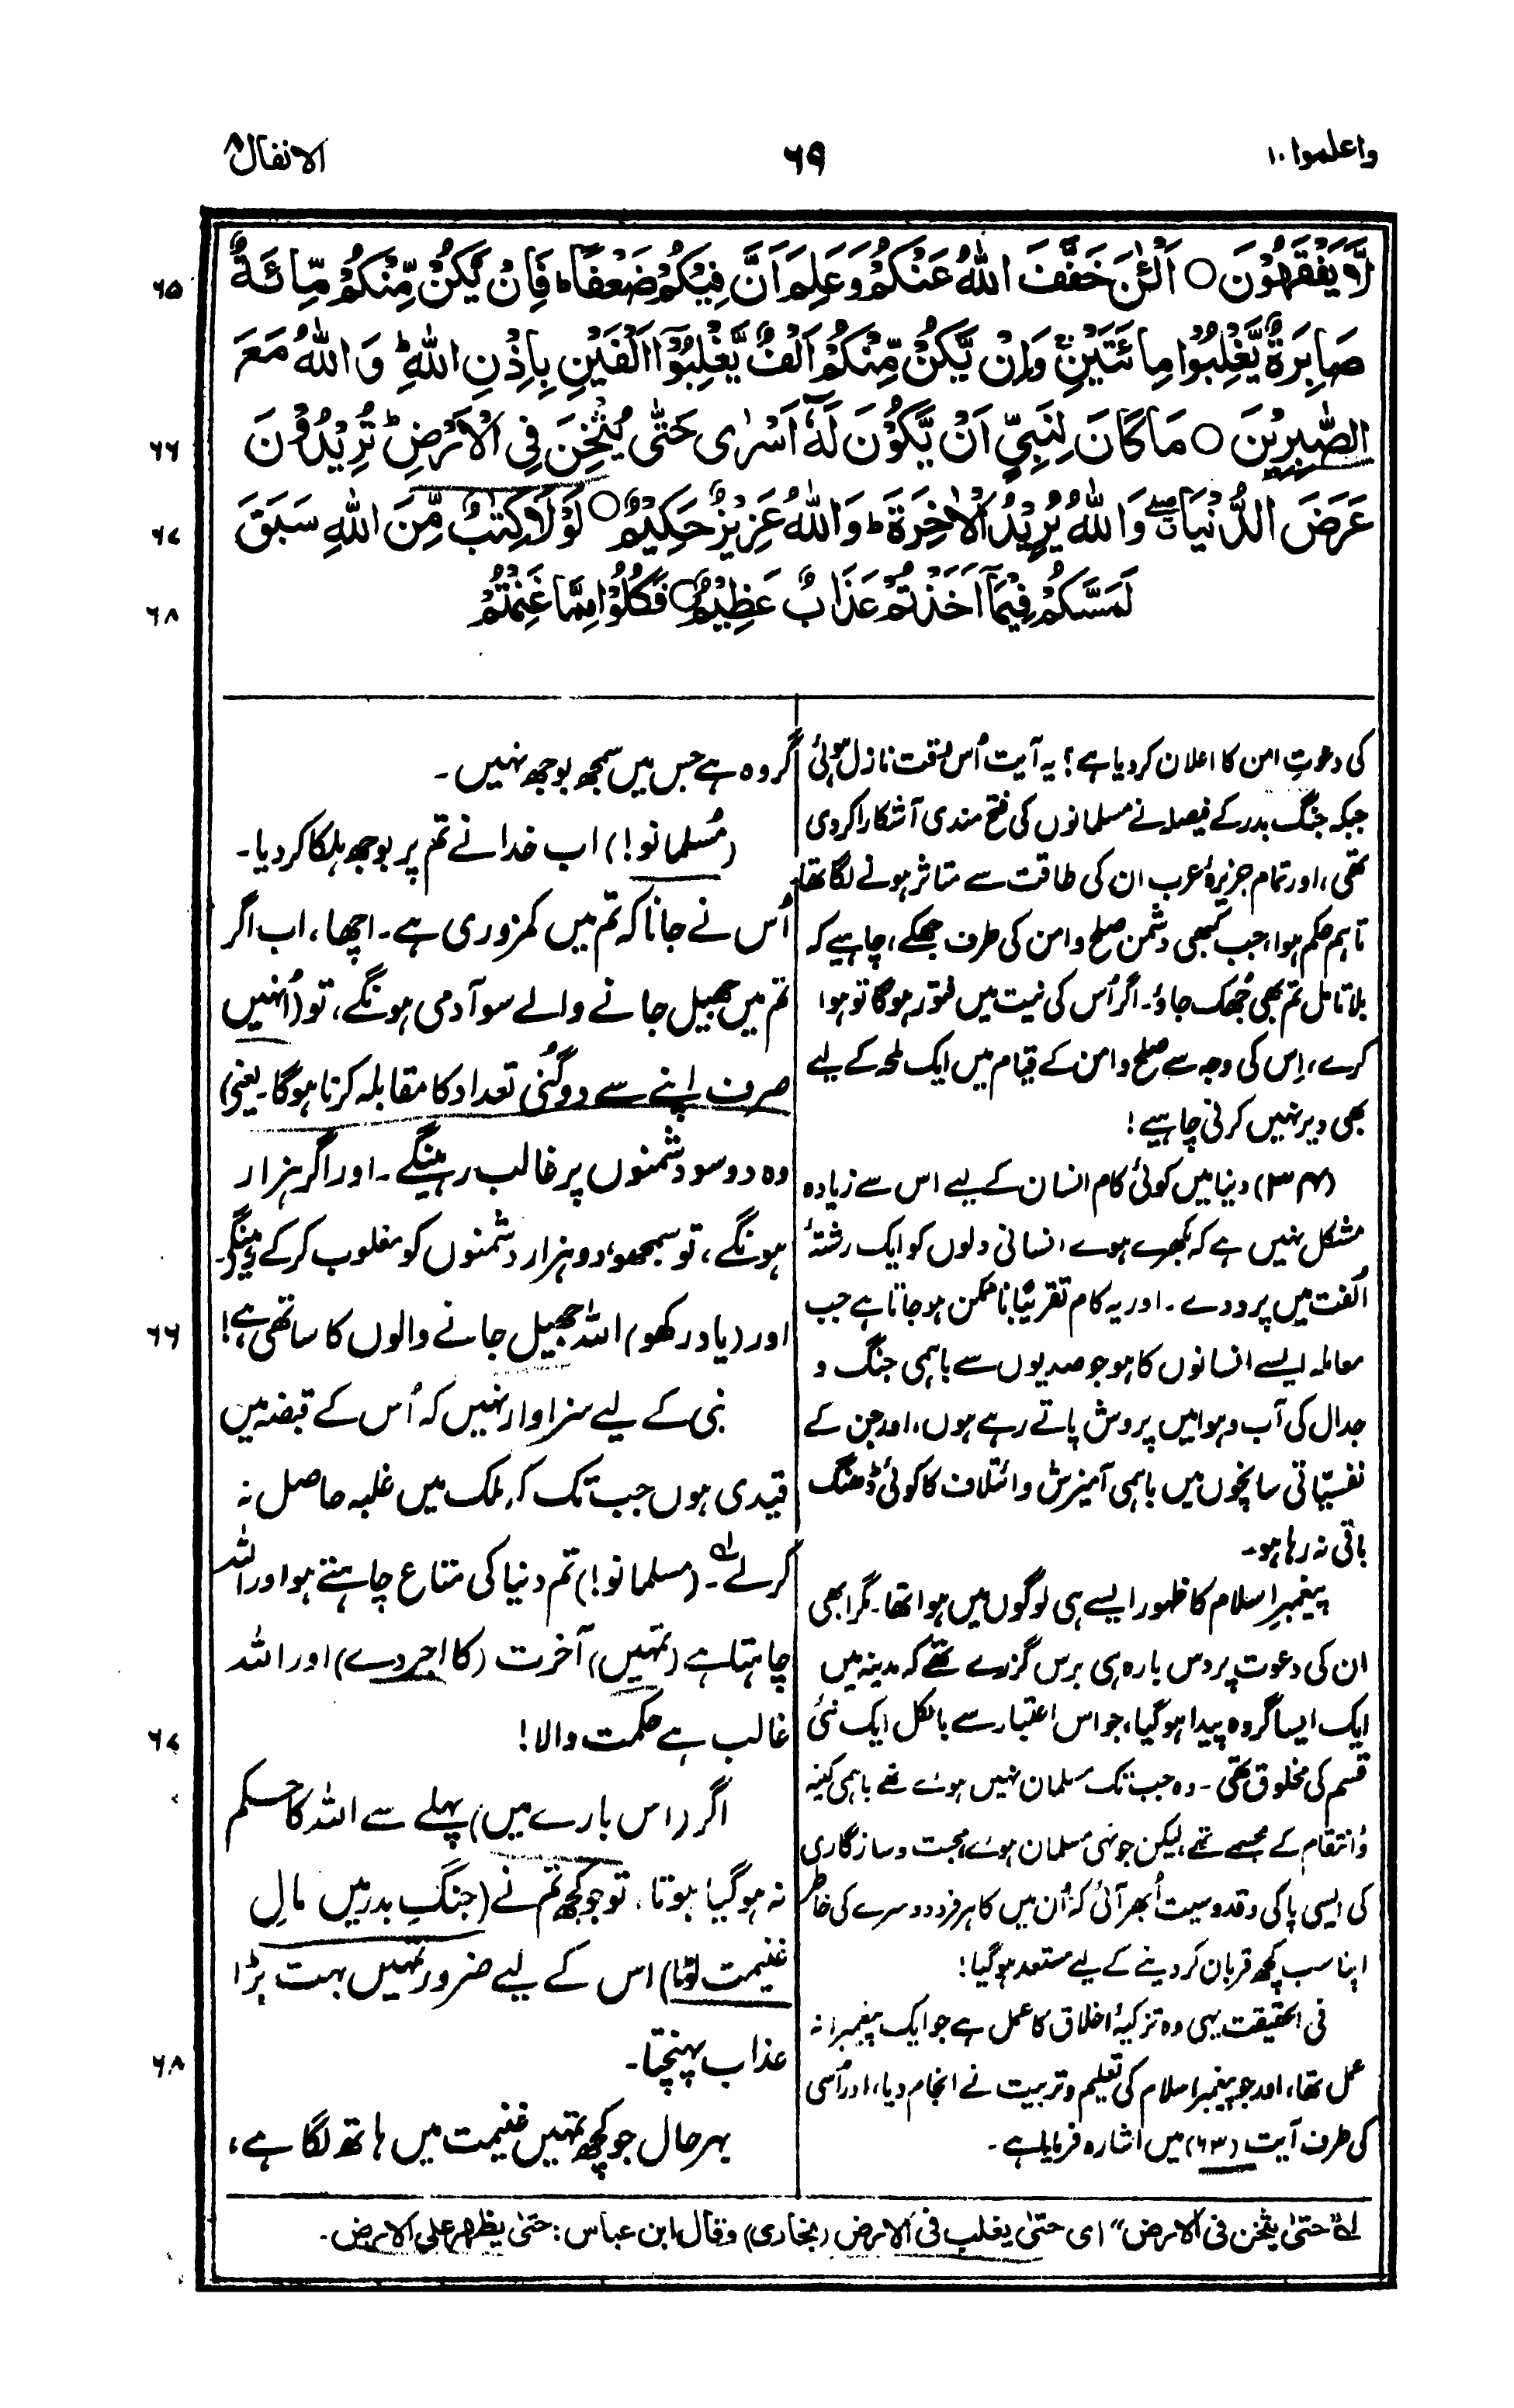 واعلموا ۱۰
۶۹
الانفال ۸
لَّا يَفْقَهُوْنَ ○ اَلْـٰٔنَ خَفَّفَ اللّٰهُ عَنْكُمْ وَعَلِمَ اَنَّ فِيْكُمْ ضَعْفًا ؕ فَاِنْ يَّكُنْ مِّنْكُمْ مِّائَةٌ
۶۵
صَابِرَةٌ يَّغْلِبُوْا مِائَتَيْنِ ۚ وَاِنْ يَّكُنْ مِّنْكُمْ اَلْفٌ يَّغْلِبُوْۤا اَلْفَيْنِ بِاِذْنِ اللّٰهِ ؕ وَاللّٰهُ مَعَ
الصّٰبِرِيْنَ ○ مَا كَانَ لِنَبِيٍّ اَنْ يَّكُوْنَ لَهٗۤ اَسْرٰى حَتّٰى يُثْخِنَ فِى الْاَرْضِ ؕ تُرِيْدُوْنَ
۶۶
عَرَضَ الدُّنْيَا ۖ وَاللّٰهُ يُرِيْدُ الْاٰخِرَةَ ؕ وَاللّٰهُ عَزِيْزٌ حَكِيْمٌ ○ لَوْلَا كِتٰبٌ مِّنَ اللّٰهِ سَبَقَ
۶۷
لَمَسَّكُمْ فِيْمَاۤ اَخَذْتُمْ عَذَابٌ عَظِيْمٌ ○ فَكُلُوْا مِمَّا غَنِمْتُمْ
۶۸
کی دعوتِ امن کا اعلان کر دیا ہے؟ یہ آیت اُس وقت نازل ہوئی
جبکہ جنگ بدر کے فیصلہ نے مسلمانوں کی فتح مندی آشکارا کر دی
تھی، اور تمام جزیرۂ عرب ان کی طاقت سے متاثر ہونے لگا تھا۔
تاہم حکم ہوا، جب کبھی دشمن صلح و امن کی طرف جھکے، چاہیے کہ
بلا تامل تم بھی جُھک جاؤ۔ اگر اُس کی نیت میں فتور ہوگا تو ہوا
کرے، اِس کی وجہ سے صلح و امن کے قیام میں ایک لمحہ کے لیے
بھی دیر نہیں کرنی چاہیے!
(۳۴) دنیا میں کوئی کام انسان کے لیے اس سے زیادہ
مشکل نہیں ہے کہ بکھرے ہوے انسانی دلوں کو ایک رشتۂ
اُلفت میں پرو دے۔ اور یہ کام تقریبًا ناممکن ہو جاتا ہے جب
معاملہ ایسے انسانوں کا ہو جو صدیوں سے باہمی جنگ و
جدال کی آب و ہوا میں پرورش پاتے رہے ہوں، اور جن کے
نفسیاتی سانچوں میں باہمی آمیزش و ائتلاف کا کوئی ڈھنگ
باقی نہ رہا ہو۔
پیغمبرِ اسلام کا ظہور ایسے ہی لوگوں میں ہوا تھا۔ مگر ابھی
ان کی دعوت پر دس بارہ ہی برس گزرے تھے کہ مدینہ میں
ایک ایسا گروہ پیدا ہوگیا، جو اس اعتبار سے بالکل ایک نئی
قسم کی مخلوق تھی۔ وہ جب تک مسلمان نہیں ہوے تھے باہمی کینہ
و انتقام کے مجسمے تھے، لیکن جونہی مسلمان ہوے، محبت و سازگاری
کی ایسی پاکی و قدوسیت اُبھر آئی کہ اُن میں کا ہر فرد دوسرے کی خاطر
اپنا سب کچھ قربان کر دینے کے لیے مستعد ہوگیا!
فی الحقیقت یہی وہ تزکیۂ اخلاق کا عمل ہے جو ایک پیغمبرانہ
عمل تھا، اور جو پیغمبر اسلام کی تعلیم و تربیت نے انجام دیا، اور اُسی
کی طرف آیت (۶۳) میں اشارہ فرمایا ہے۔
گروہ ہے جس میں سمجھ بوجھ نہیں۔
(مُسلمانو!) اب خدا نے تم پر بوجھ ہلکا کر دیا۔
اُس نے جانا کہ تم میں کمزوری ہے۔ اچھا، اب اگر
تم میں جھیل جانے والے سو آدمی ہونگے، تو (اُنہیں
صرف اپنے سے دوگنی تعداد کا مقابلہ کرنا ہوگا۔ یعنی)
وہ دو سو دشمنوں پر غالب رہینگے۔ اور اگر ہزار
ہونگے، تو سمجھو، دو ہزار دشمنوں کو مغلوب کر کے رہینگے۔
اور (یاد رکھو) اللہ جھیل جانے والوں کا ساتھی ہے!
۶۶
نبی کے لیے سزاوار نہیں کہ اُس کے قبضہ میں
قیدی ہوں جب تک کہ ملک میں غلبہ حاصل نہ
کر لے۔ لہ (مسلمانو!) تم دنیا کی متاع چاہتے ہو اور اللہ
چاہتا ہے (تمہیں) آخرت (کا اجر دے) اور اللہ
غالب ہے حکمت والا!
۶۷
اگر (اس بارے میں) پہلے سے اللہ کا حکم
نہ ہوگیا ہوتا، تو جو کچھ تم نے (جنگِ بدر میں مالِ
غنیمت لوٹا) اس کے لیے ضرور تمہیں بہت بڑا
عذاب پہنچتا۔
۶۸
بہرحال جو کچھ تمہیں غنیمت میں ہاتھ لگا ہے،
لہ "حتیٰ یثخن فی الارض" ای حتیٰ یغلب فی الارض (بخاری) وقال ابن عباس: حتیٰ یظهر علی الارض۔